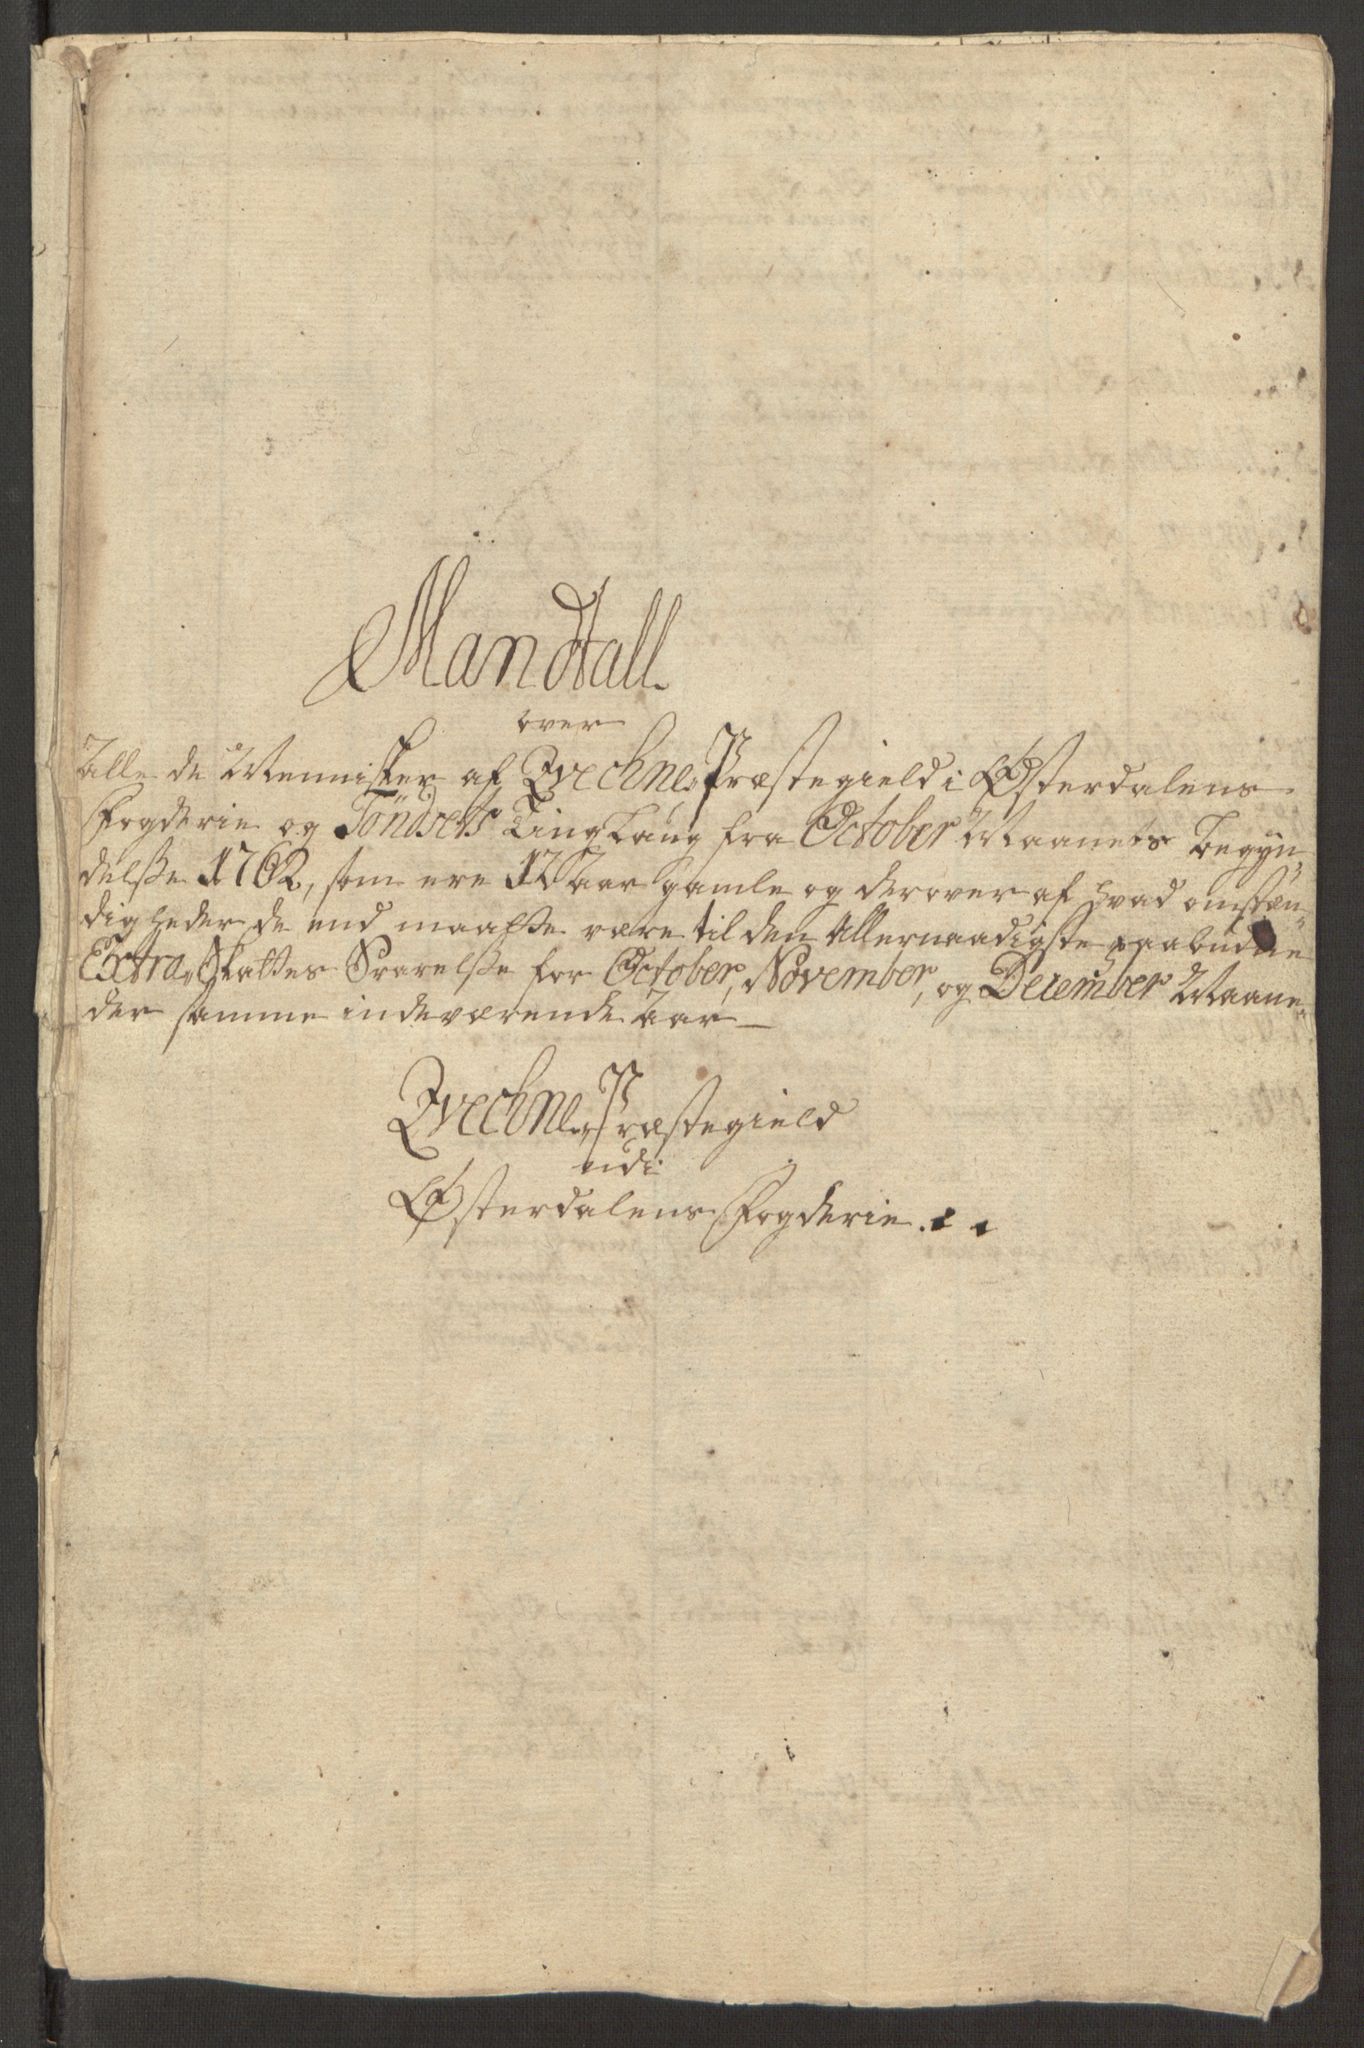 Mandtall
over
Alle de Mennisker af Qvechne Præstegield i Østerdalens
Fogderie og Töndsets Tinglaug fra October Maanets begyn,,
delsse 1762, som ere 12 Aar gamle og derover af hvad omstæn,,
digheder de end maatte være til den Allernaadigste paabudne
Extra Skattes Svarelsse for October, November, og December Maane,,
der samme indeværende Aar
Qvechne Præstegield
udi
Østerdalens Fogderie